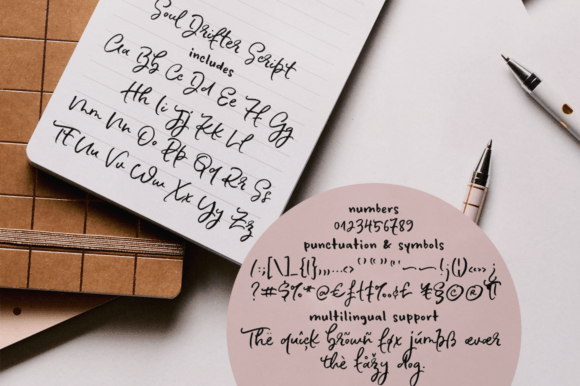 Soul Drifter Script
includes
Aa Bb Cc Dd Ee Ff Gg
Hh Ii Jj Kk Ll
Mm Nn Oo Pp Qq Rr Ss
Tt Uu Vv Ww Xx Yy Zz
numbers
0123456789
punctuation & symbols
multilingual support
Thë quîçk brõwñ føx júmþß œvær
thè låžy dog.